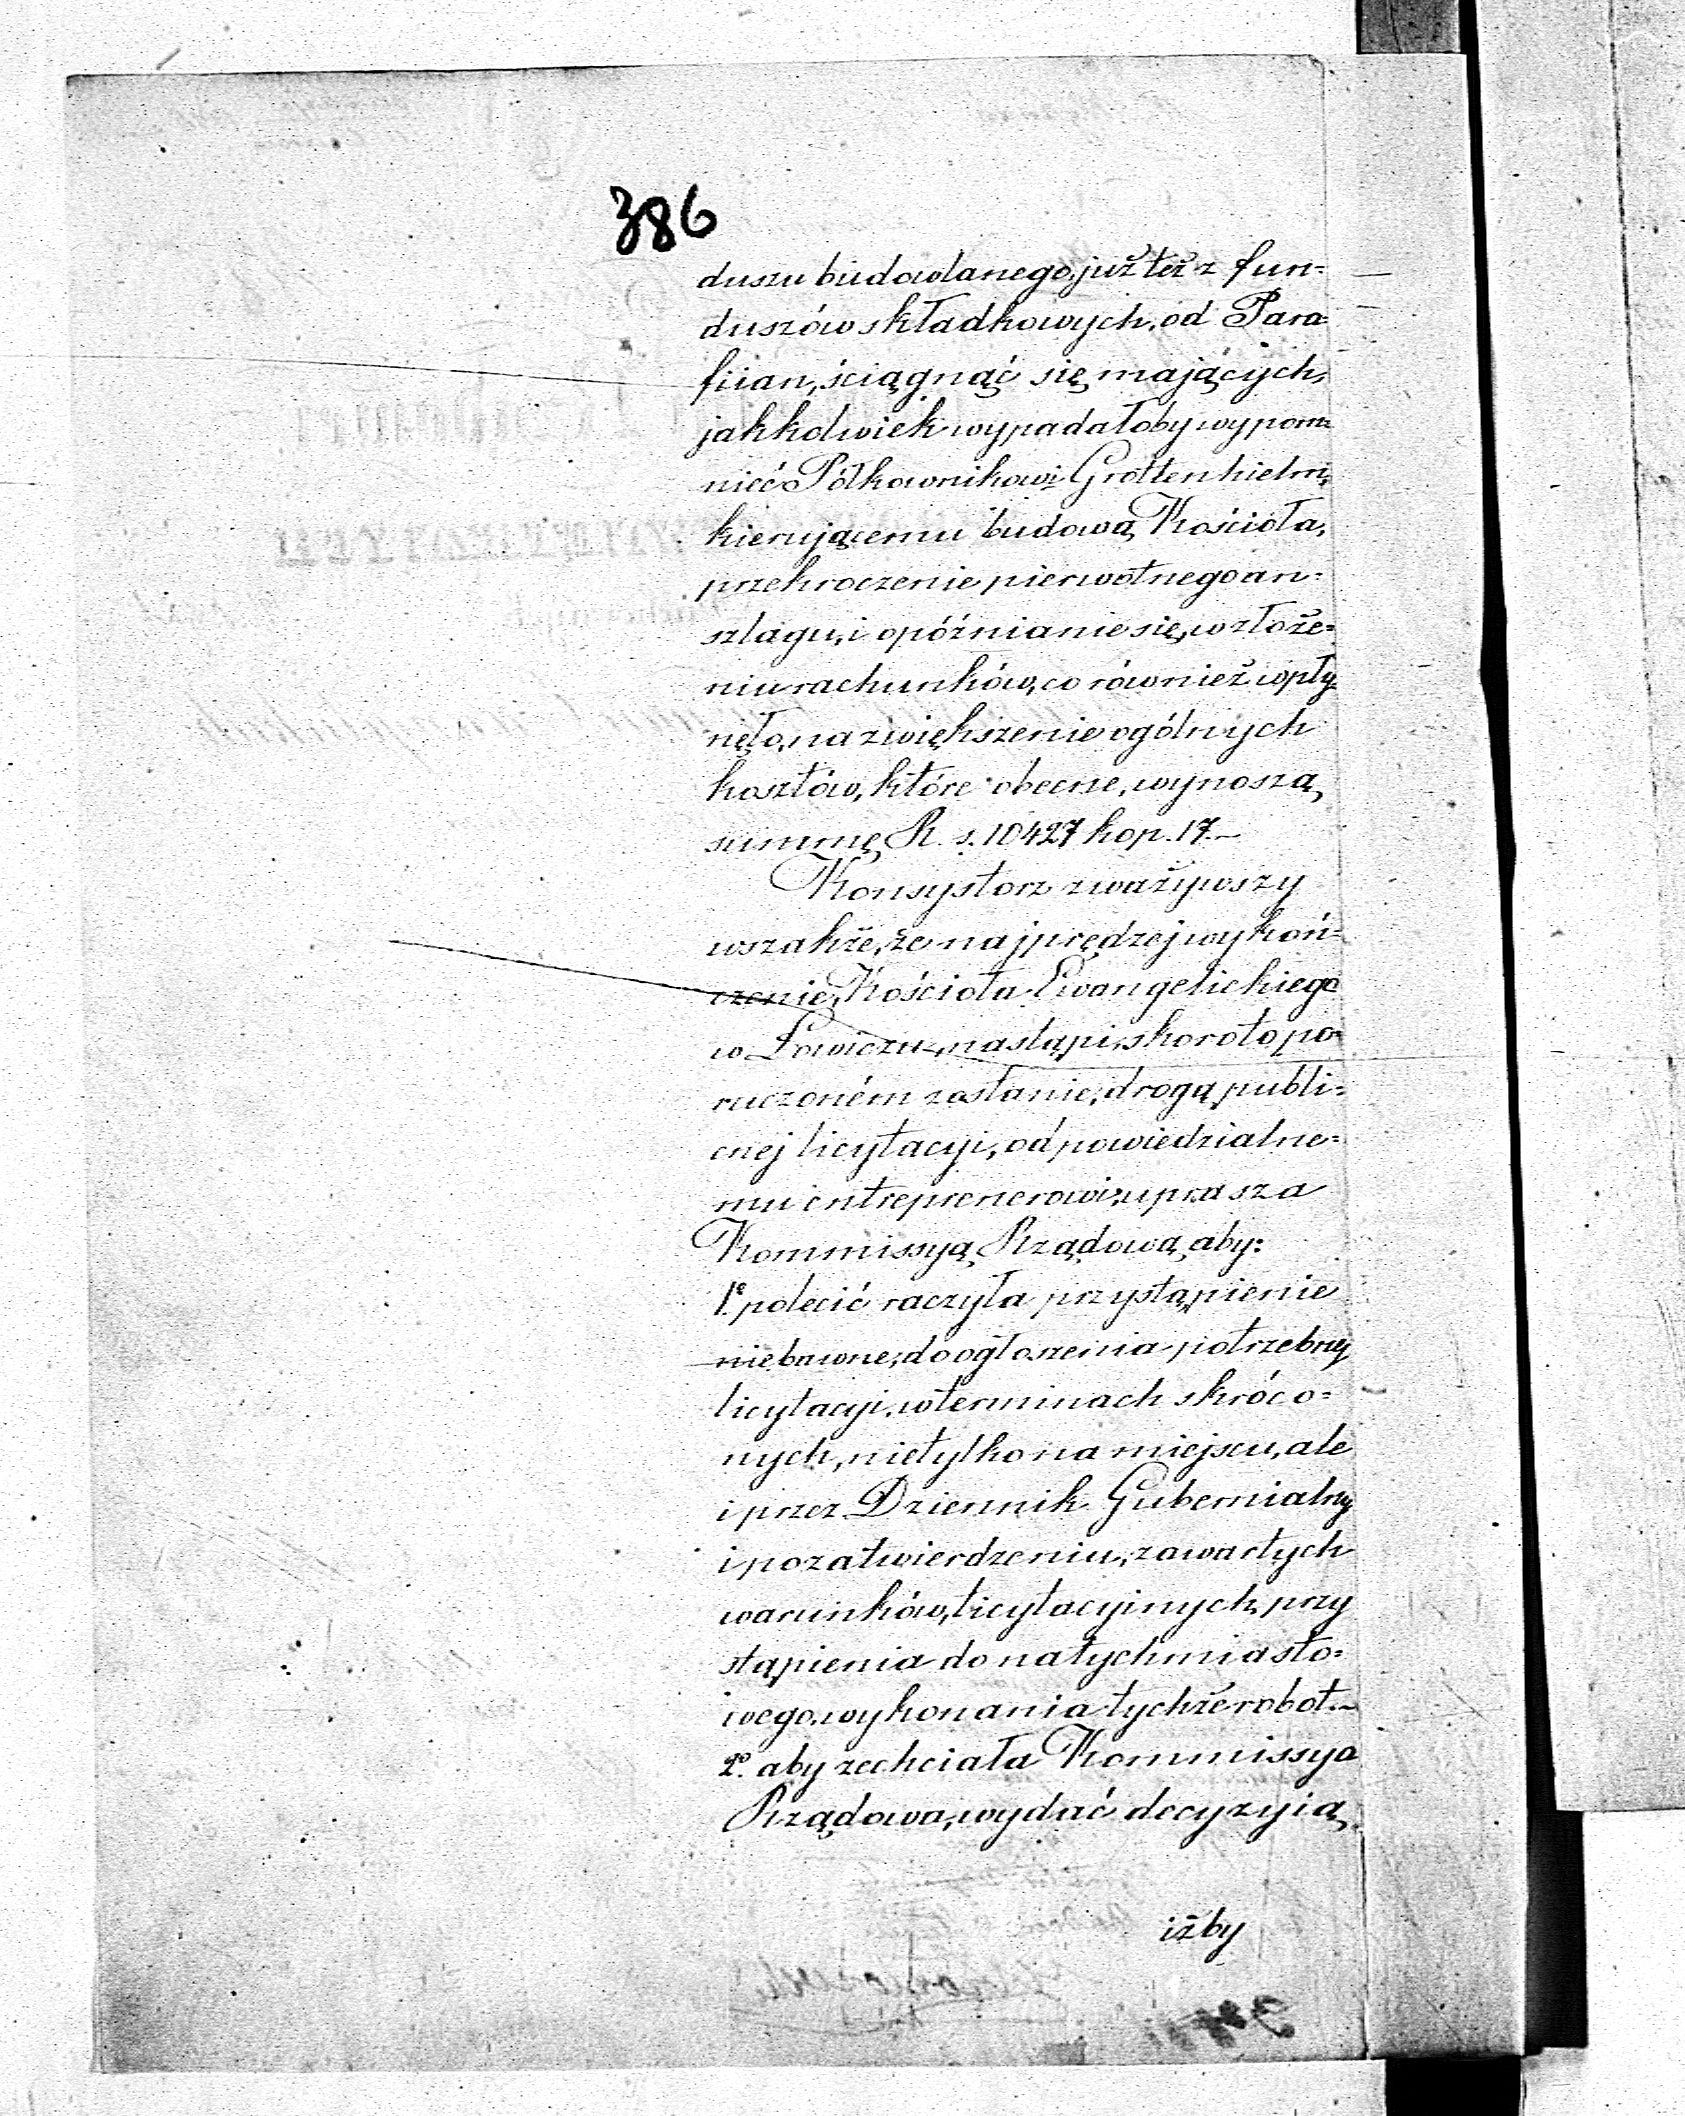 386
duszu budowlanego, już też z fun=
duszów składkowych, od Para=
fiian, ściągnąć się mających,
jakkolwiek wypadałoby wypom=
nieć Półkownikowi Grottenhielm,
kierującemu budową Kościoła,
przekroczenie pierwotnego an=
szlagu, i opóźnianie się, w złoże=
niu rachunków, co również wpły=
nęło, na zwiększenie ogólnych
kosztów, które obecne, wynoszą
summę R. s. 10427 kop. 17.-
Konsystorz zważywszy
wszakże, że najprędzej wykoń=
czenie, Kościoła Ewangelickiego
w Łowiczu, nastąpi, skoro to po=
ruczoném zostanie, drogą publi=
cnej licytacyi, odpowiedzialne=
mu entreprenerowi, uprasza
Kommissyą Rządową, aby:
1º. polecić raczyła przystąpienie
niebawne, do ogłoszenia potrzebnej
licytacyi, w terminach skróco=
nych, nietylko na miejscu, ale
i przez Dziennik Gubernialny
i po zatwierdzeniu, zawartych
warunków, licytacyjnych, przy
stąpienia do natychmiasto=
wego, wykonania tychże robot.-
2º. aby zechciała Kommissya
Rządowa, wydać decyzyią,
iżby